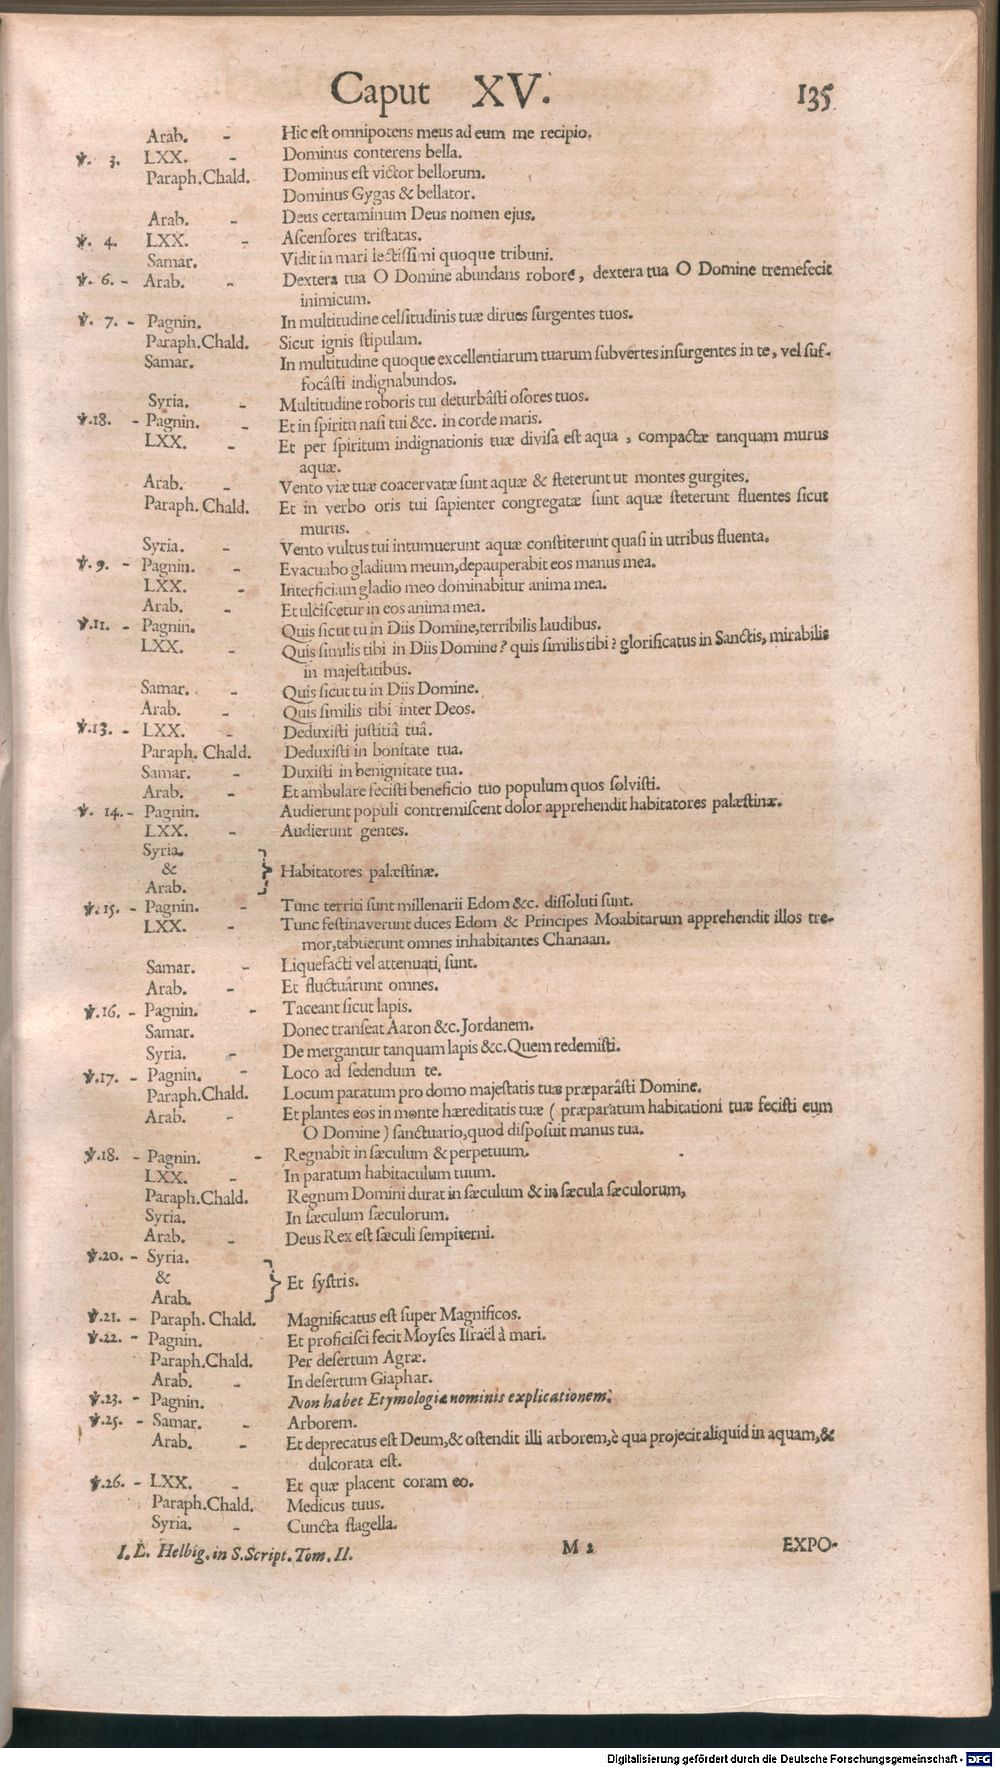 Caput XV. 135
Arab. - Hic est omnipotens meus ad eum me recipio.
℣. 3. LXX. - Dominus conterens bella.
Paraph.Chald. Dominus est victor bellorum.
Dominus Gygas & bellator.
Arab. - Deus certaminum Deus nomen ejus.
℣. 4. LXX. - Ascensores tristatas.
Samar. Vidit in mari lectissimi quoque tribuni.
℣. 6. - Arab. - Dextera tua O Domine abundans robore, dextera tua O Domine tremefecit
inimicum.
℣. 7. - Pagnin. In multitudine celsitudinis tuæ dirues surgentes tuos.
Paraph.Chald. Sicut ignis stipulam.
Samar. In multitudine quoque excellentiarum tuarum subvertes insurgentes in te, vel suf-
focâsti indignabundos.
Syria. - Multitudine roboris tui deturbâsti osores tuos.
℣.18. - Pagnin. - Et in spiritu nasi tui &c. in corde maris.
LXX. - Et per spiritum indignationis tuæ divisa est aqua, compactæ tanquam murus
aquæ.
Arab. - Vento viæ tuæ coacervatæ sunt aquæ & steterunt ut montes gurgites.
Paraph.Chald. Et in verbo oris tui sapienter congregatæ sunt aquæ steterunt fluentes sicut
murus.
Syria. - Vento vultus tui intumuerunt aquæ constiterunt quasi in utribus fluenta.
℣. 9. - Pagnin. - Evacuabo gladium meum,depauperabit eos manus mea.
LXX. - Interficiam gladio meo dominabitur anima mea.
Arab. - Et ulciscetur in eos anima mea.
℣.11. - Pagnin. Quis sicut tu in Diis Domine,terribilis laudibus.
LXX. - Quis similis tibi in Diis Domine? quis similis tibi? glorificatus in Sanctis, mirabilis
in majestatibus.
Samar. - Quis sicut tu in Diis Domine.
Arab. - Quis similis tibi inter Deos.
℣.13. - LXX. - Deduxisti justitiâ tuâ.
Paraph. Chald. Deduxisti in bonitate tua.
Samar. - Duxisti in benignitate tua.
Arab. - Et ambulare fecisti beneficio tuo populum quos solvisti.
℣. 14.- Pagnin. Audierunt populi contremiscent dolor apprehendit habitatores palæstinæ.
LXX. - Audierunt gentes.
Syria.
& } Habitatores palæstinæ.
Arab.
℣.15. - Pagnin. - Tunc territi sunt millenarii Edom &c. dissoluti sunt.
LXX. - Tunc festinaverunt duces Edom & Principes Moabitarum apprehendit illos tre-
mor,tabuerunt omnes inhabitantes Chanaan.
Samar. - Liquefacti vel attenuati, sunt.
Arab. - Et fluctuârunt omnes.
℣.16. - Pagnin. - Taceant sicut lapis.
Samar. Donec transeat Aaron &c. Jordanem.
Syria. - De mergantur tanquam lapis &c. Quem redemisti.
℣.17. - Pagnin. - Loco ad sedendum te.
Paraph.Chald. Locum paratum pro domo majestatis tuæ præparâsti Domine.
Arab. - Et plantes eos in monte hæreditatis tuæ ( præparatum habitationi tuæ fecisti eum
O Domine ) sanctuario,quod disposuit manus tua.
℣.18. - Pagnin. - Regnabit in sæculum & perpetuum.
LXX. - In paratum habitaculum tuum.
Paraph.Chald. Regnum Domini durat in sæculum & in sæcula sæculorum,
Syria. In sæculum sæculorum.
Arab. - Deus Rex est sæculi sempiterni.
℣.20. - Syria.
& } Et systris.
Arab.
℣.21. - Paraph. Chald. Magnificatus est super Magnificos.
℣.22. - Pagnin. Et proficisci fecit Moyses Israël à mari.
Paraph.Chald. Per desertum Agræ.
Arab. - In desertum Giaphar.
℣.23. - Pagnin. Non habet Etymologiæ nominis explicationem.
℣.25. - Samar. - Arborem.
Arab. - Et deprecatus est Deum,& ostendit illi arborem,è qua projecit aliquid in aquam,&
dulcorata est.
℣.26. - LXX. - Et quæ placent coram eo.
Paraph.Chald. Medicus tuus.
Syria. - Cuncta flagella.
I. L. Helbig. in S.Script. Tom. II. M 2 EXPO-
Digitalisierung gefördert durch die Deutsche Forschungsgemeinschaft - DFG